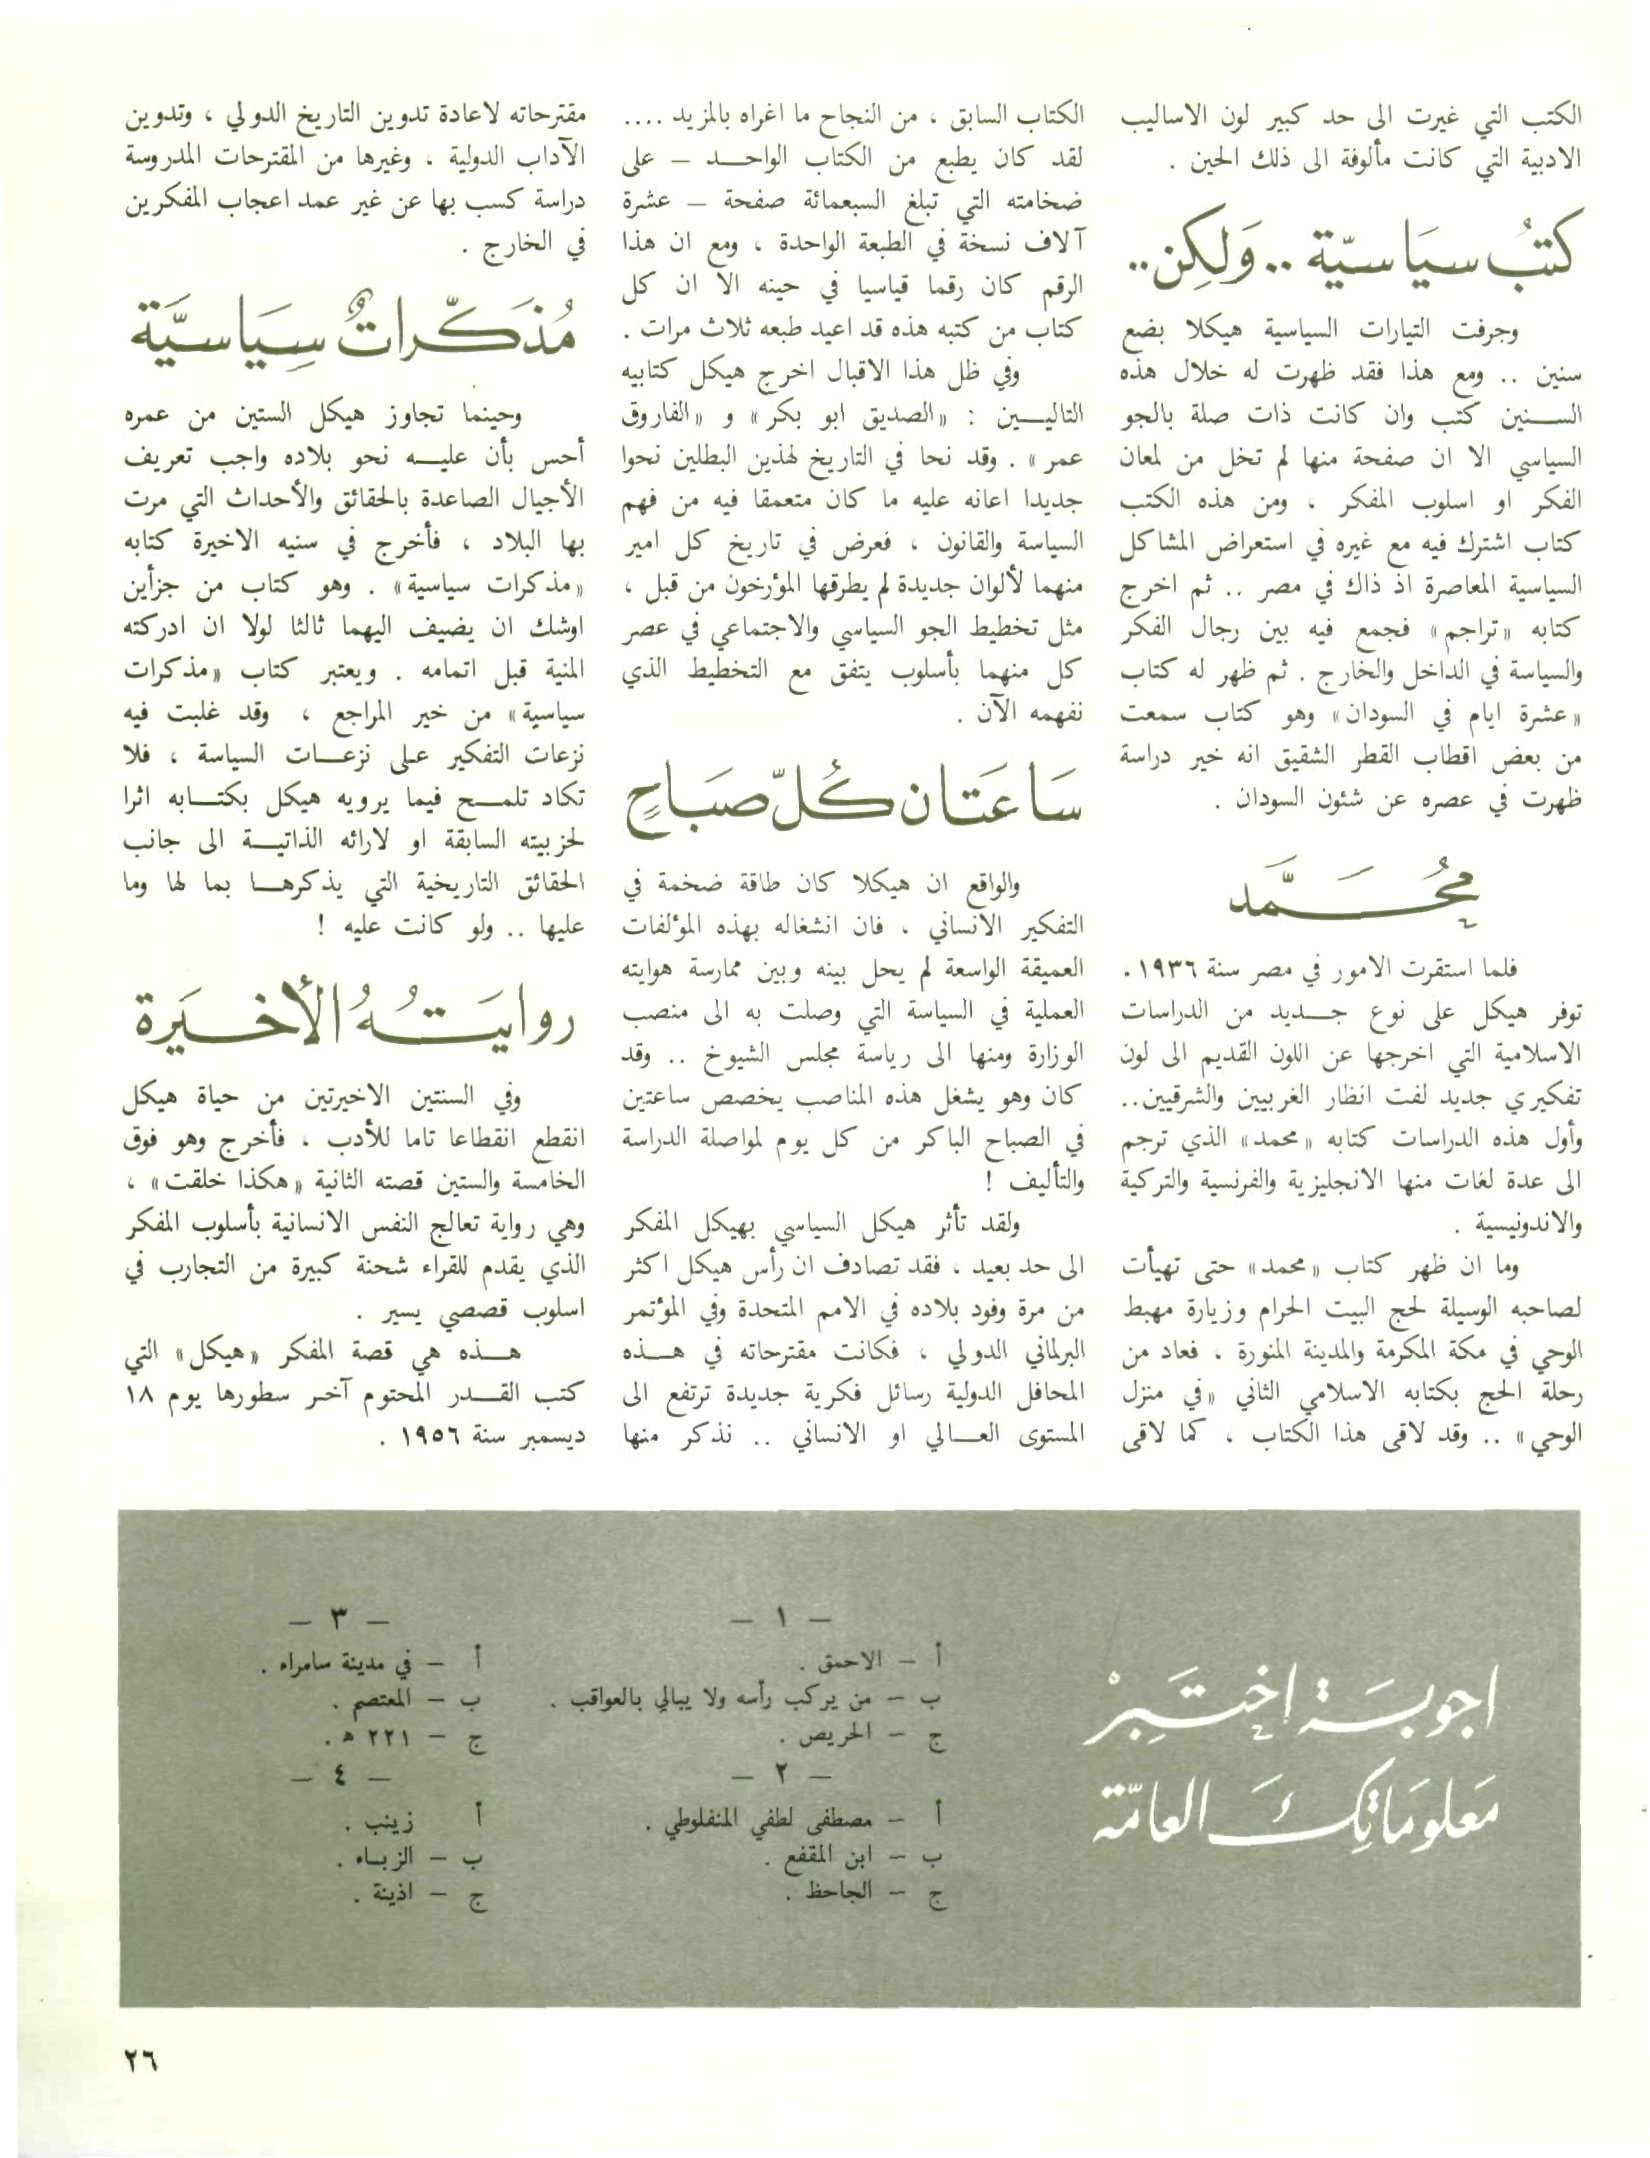 الكتب التي غيرت الى حد كبير لون الاساليب
الادبية التي كانت مألوفة الى ذلك الحين .
كتبُ سيَاسيّة .. وَلكِن ..
وجرفت التيارات السياسية هيكلا بضع
سنين .. ومع هذا فقد ظهرت له خلال هذه
الســنين كتب وان كانت ذات صلة بالجو
السياسي الا ان صفحة منها لم تخل من لمعان
الفكر او اسلوب المفكر ، ومن هذه الكتب
كتاب اشترك فيه مع غيره في استعراض المشاكل
السياسية المعاصرة اذ ذاك في مصر .. ثم اخرج
كتابه «تراجم» فجمع فيه بين رجال الفكر
والسياسة في الداخل والخارج . ثم ظهر له كتاب
«عشرة ايام في السودان» وهو كتاب سمعت
من بعض اقطاب القطر الشقيق انه خير دراسة
ظهرت في عصره عن شئون السودان .
محُـمَّد
فلما استقرت الامور في مصر سنة ١٩٣٦ .
توفر هيكل على نوع جـديد من الدراسات
الاسلامية التي اخرجها عن اللون القديم الى لون
تفكيري جديد لفت انظار الغربيين والشرقيين..
وأول هذه الدراسات كتابه «محمد» الذي ترجم
الى عدة لغات منها الانجليزية والفرنسية والتركية
والاندونيسية .
وما ان ظهر كتاب «محمد» حتى تهيأت
لصاحبه الوسيلة لحج البيت الحرام وزيارة مهبط
الوحي في مكة المكرمة والمدينة المنورة ، فعاد من
رحلة الحج بكتابه الاسلامي الثاني «في منزل
الوحي» .. وقد لاقى هذا الكتاب ، كما لاقى
الكتاب السابق ، من النجاح ما اغراه بالمزيد ....
لقد كان يطبع من الكتاب الواحــد – على
ضخامته التي تبلغ السبعمائة صفحة – عشرة
آلاف نسخة في الطبعة الواحدة ، ومع ان هذا
الرقم كان رقما قياسيا في حينه الا ان كل
كتاب من كتبه هذه قد اعيد طبعه ثلاث مرات .
وفي ظل هذا الاقبال اخرج هيكل كتابيه
التاليــين : «الصديق ابو بكر» و «الفاروق
عمر» . وقد نحا في التاريخ لهذين البطلين نحوا
جديدا اعانه عليه ما كان متعمقا فيه من فهم
السياسة والقانون ، فعرض في تاريخ كل امير
منهما لألوان جديدة لم يطرقها المؤرخون من قبل ،
مثل تخطيط الجو السياسي والاجتماعي في عصر
كل منهما بأسلوب يتفق مع التخطيط الذي
نفهمه الآن .
سَاعَتَان كُلّ صَبَاحٍ
والواقع ان هيكلا كان طاقة ضخمة في
التفكير الانساني ، فان انشغاله بهذه المؤلفات
العميقة الواسعة لم يحل بينه وبين ممارسة هوايته
العملية في السياسة التي وصلت به الى منصب
الوزارة ومنها الى رياسة مجلس الشيوخ .. وقد
كان وهو يشغل هذه المناصب يخصص ساعتين
في الصباح الباكر من كل يوم لمواصلة الدراسة
والتأليف !
ولقد تأثر هيكل السياسي بهيكل المفكر
الى حد بعيد ، فقد تصادف ان رأس هيكل اكثر
من مرة وفود بلاده في الامم المتحدة وفي المؤتمر
البرلماني الدولي ، فكانت مقترحاته في هــذه
المحافل الدولية رسائل فكرية جديدة ترتفع الى
المستوى العــالي او الانساني .. نذكر منها
مقترحاته لاعادة تدوين التاريخ الدولي ، وتدوين
الآداب الدولية ، وغيرها من المقترحات المدروسة
دراسة كسب بها عن غير عمد اعجاب المفكرين
في الخارج .
مُذَكّراتٌ سِيَاسيَّة
وحينما تجاوز هيكل الستين من عمره
أحس بأن عليــه نحو بلاده واجب تعريف
الأجيال الصاعدة بالحقائق والأحداث التي مرت
بها البلاد ، فأخرج في سنيه الاخيرة كتابه
«مذكرات سياسية» . وهو كتاب من جزأين
اوشك ان يضيف اليهما ثالثا لولا ان ادركته
المنية قبل اتمامه . ويعتبر كتاب «مذكرات
سياسية» من خير المراجع ، وقد غلبت فيه
نزعات التفكير على نزعــات السياسة ، فلا
تكاد تلمــح فيما يرويه هيكل بكتــابه اثرا
لحزبيته السابقة او لارائه الذاتيــة الى جانب
الحقائق التاريخية التي يذكرهــا بما لها وما
عليها .. ولو كانت عليه !
روايَـتُـهُ الأخـيَرة
وفي السنتين الاخيرتين من حياة هيكل
انقطع انقطاعا تاما للأدب ، فأخرج وهو فوق
الخامسة والستين قصته الثانية «هكذا خلقت» ،
وهي رواية تعالج النفس الانسانية بأسلوب المفكر
الذي يقدم للقراء شحنة كبيرة من التجارب في
اسلوب قصصي يسير .
هــذه هي قصة المفكر «هيكل» التي
كتب القــدر المحتوم آخـر سطورها يوم ١٨
ديسمبر سنة ١٩٥٦ .
اجوبـة اختَـبِرْ
مَعلومَاتِكَ العامّة
– ١ –
أ – الاحمق .
ب – من يركب رأسه ولا يبالي بالعواقب .
ج – الحريص .
– ٢ –
أ – مصطفى لطفي المنفلوطي .
ب – ابن المقفع .
ج – الجاحظ .
– ٣ –
أ – في مدينة سامراء .
ب – المعتصم .
ج – ٢٢١ ه .
– ٤ –
أ زينب .
ب – الزبـاء .
ج – اذينة .
٢٦